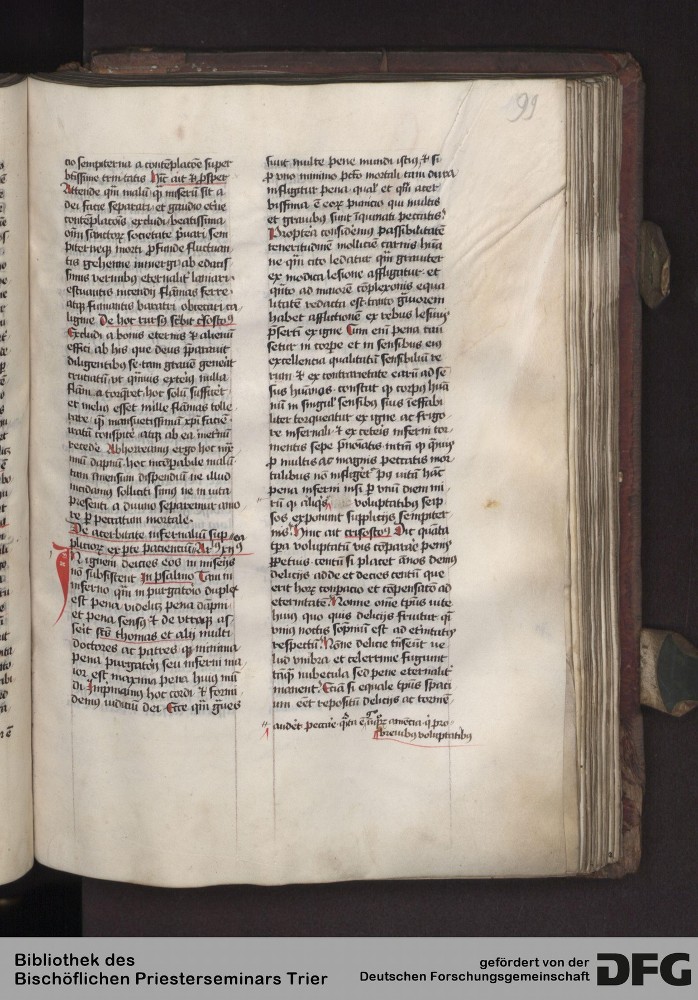 99
cio sempiterna a contēplacōe super
btissime trinitatis hīc ait ⁊ ꝓsper
Attende qm̄ malū qͣ miserū sit a
dei facie separari et gaudio et
contēplacōis excludi beatissima
oīm sanctoꝝ societate ꝓuari sem
piterneqꝫ morti ꝓfunde fluctuan
tis gehenne inmergi ab edacis
simis vermibꝰ eternalitʼ laniari
estuantis incendij flāmas ferre
atqꝫ fumantis baratri obtectari ca
ligine De hoc rursꝰ sc̄bit c̄sostoꝰ
Excludi a bonis eternis ⁊ alienū
effici ab his que deus p̄parauit
diligentibus se tam grauē gen̄at
cruciatū vt qm̄uis exterꝰ nulla
flāma torq̄ret hoc solū sufficēt
et melius esset mille flāmas tolle
rare qͣ mansuetissimū xp̄i faciē
iratū conspice atqꝫ ab ea
recede Abhorreamꝰ ergo hoc
mū dapnū hoc incōpabile malū
tam imensum dispendiū ne illud
incidamꝰ solliciti simꝰ ne in vita
presenti a diuino separemur amo
re ꝑ peccatum mortale
De acerbitate infernaliū sup
plicioꝝ ex pte pacienciū
In ignem deicies eos in miserijs
nō subsistent In psalmo Tam in
inferno qm̄ in purgatorio duplex
est pena videlicꝫ pena dāpni
et pena sensꝰ ⁊ de vtraqꝫ as
serit sc̄us thomas et alij multi
doctores ac patres qꝫ minima
pena purgatorij seu inferni ma
ior est maxima pena huiꝰ mū
di Inprimamꝰ hoc cordi ⁊ formi
demꝰ iudiciū dei Ecce qm̄ graues
sunt multe pene mundi istiꝰ ⁊ si
ꝓ vno minimo pctō mortali tam dura
infligitur pena qualʼ et qm̄ acer
bissima ē eoꝝ punicio qui multis
et grauibꝰ sunt īquinati peccatis
Propterea considemꝰ passibilitatē
teneritudinē molliciē carnis hūa
ne qm̄ cito ledatur qm̄ grauiter
ex modica lesione affligatur et
qn̄to ad maiorē cōplexionis equa
litatē redacta est tanto gͣuiorem
habet afflictionē ex rebus lesiuis
p̄serti ex igne Cum enī pena cau
setur in corpe et in sensibus eiꝰ
excellencia qualitatū sensibiliū re
rum ⁊ ex contrarietate earū ad se
sus huānos constat qꝫ corpꝰ huā
nū in singulʼ sensibꝰ suis īeffabi
liter torqueatur ex igne ac frigo
re infernali ⁊ ex ceteris inferni tor
mentis
ꝑ multis ac magnis peccatis mor
talibus nō infliget
pena inferni nisi ꝑ vnū diem mi
rū qꝫ aliqͥs voluptatibꝰ seip
sos exponunt supplicijs sempiter
nis Hinc ait crisostoꝰ Dic quāta
tpa voluptatū vis cōparare penis
ꝑpetuis centū si placet ānos demꝰ
delicijs adde et decies centū que
erit horꝫ cōpacio et cōpensacō ad
eternitatē Nonne omē tp̄us vite
huiꝰ quo quis delicijs fruitur qͣ
vniꝰ noctis sopniū est ad et̄nitatis
respectū Nōne delicie trāseūt ve
lud vmbra et celerrime fugiunt
tāqͣ nubecula sed pene eternalitʼ
manent Etiā si equale tp̄us spaci
um eēt repositū delicijs ac tormē
audet peccare
breuibꝰ voluptatibꝰ
Bibliothek des
Bischöflichen Priesterseminars Trier
gefördert von der
Deutschen Forschungsgemeinschaft
DFG